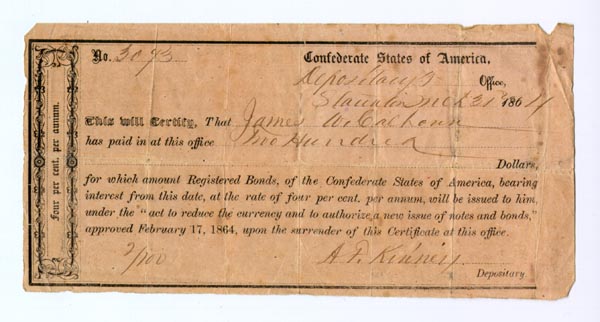 Four per cent. per annum.
No. 3073
Confederate States of America,
Depositary's Office,
Staunton Mch 31st 1864
This will Certify, That James W. Calhoun
has paid in at this office Two Hundred
Dollars,
for which amount Registered Bonds, of the Confederate States of America, bearing
interest from this date, at the rate of four per cent. per annum, will be issued to him,
under the "act to reduce the currency and to authorize a new issue of notes and bonds,"
approved February 17, 1864, upon the surrender of this Certificate at this office.
A. F. Kinney
Depositary.